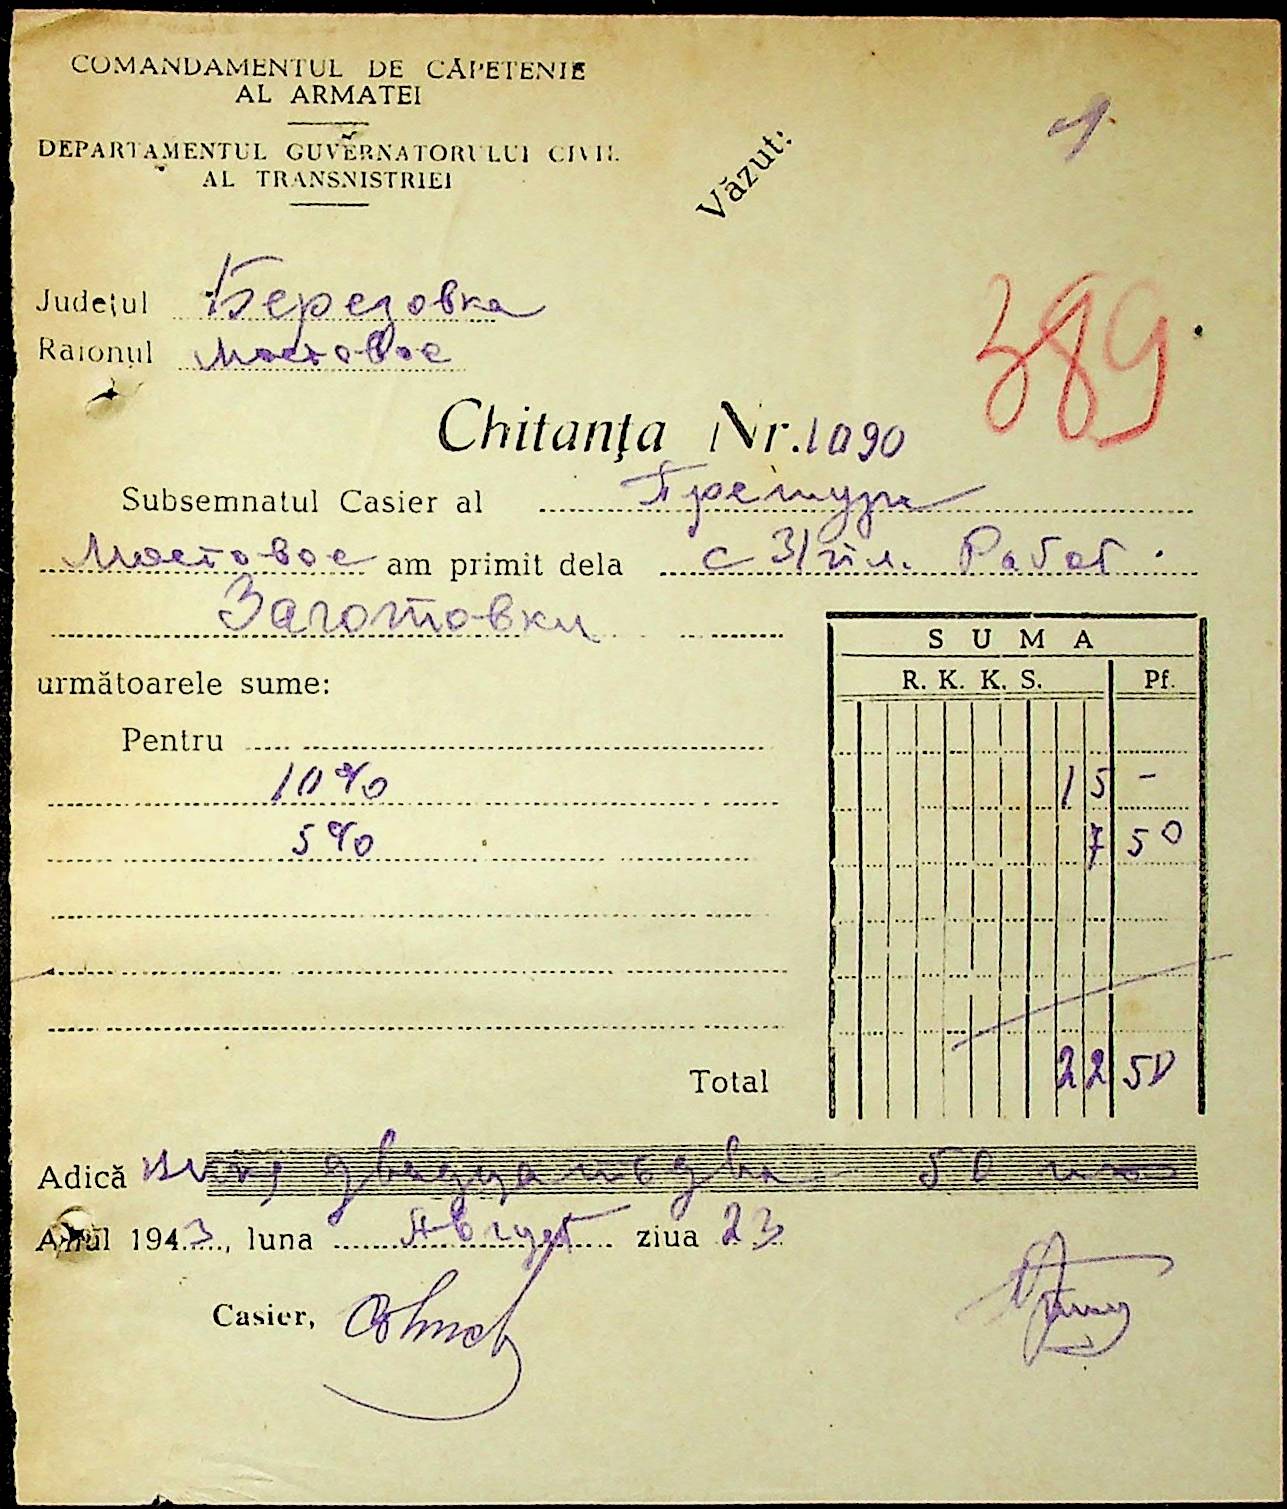 COMANDAMENTUL DE CĂPETENIE
AL ARMATEI
DEPARTAMENTUL GUVERNATORULUI CIVIL
AL TRANSNISTRIEI
Văzut:
389
Județul Березовка
Raionul Мостовое
Chitanța Nr. 1090
Subsemnatul Casier al Претури
Мостовое am primit dela с з/пл. Работ.
Заготовки
S U M A
următoarele sume:
R. K. K. S. Pf.
Pentru
10% 15 -
5% 7 50
Total 22 50
Adică двадцатьдва 50
Anul 1943, luna Август ziua 23
Casier,